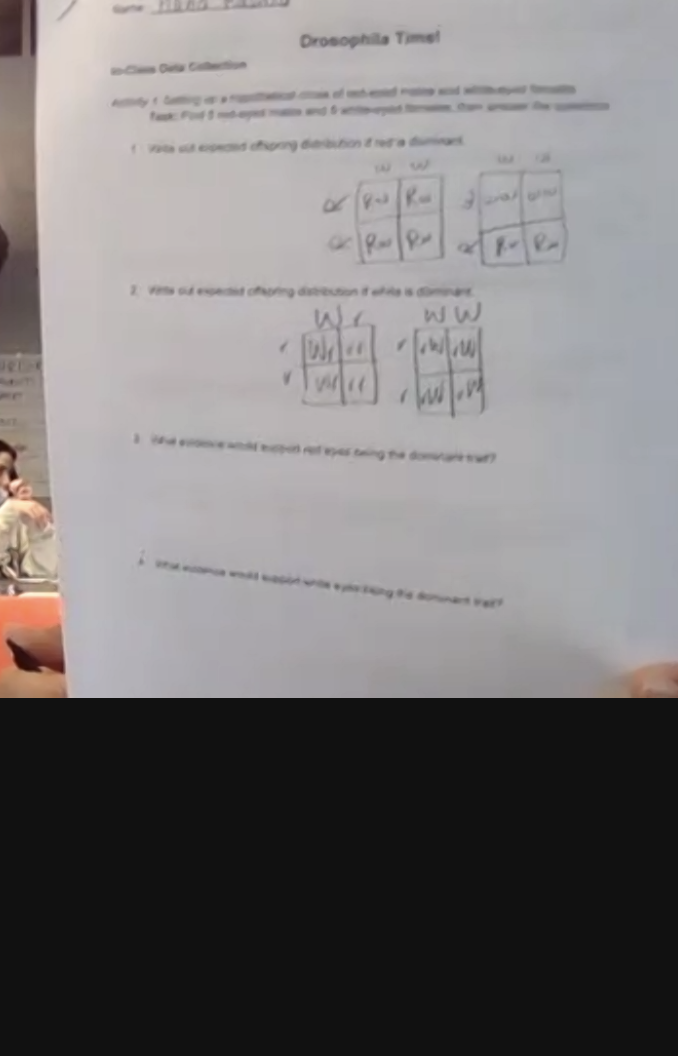 Name
Drosophila Time!
In-Class Data Collection
Activity 1: Setting up a hypothetical cross of red-eyed males and white-eyed females
Task: Find 5 red-eyed males and 5 white-eyed females, then answer the questions
1. Write out expected offspring distribution if red is dominant.
w w
R Rw Rw ww ww
R Rw Rw Rw Rw
2. Write out expected offspring distribution if white is dominant.
W r W W
r Wr rr r rW rW
r Wr rr r rW rW
3. What evidence would support red eyes being the dominant trait?
4. What evidence would support white eyes being the dominant trait?